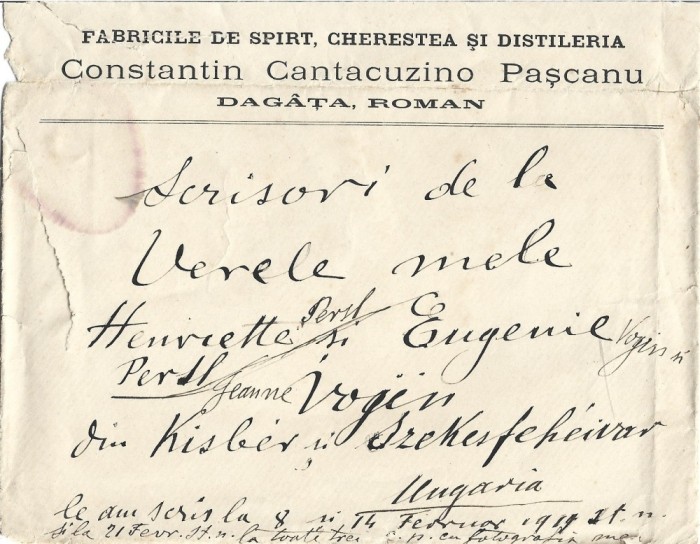 FABRICILE DE SPIRT, CHERESTEA ŞI DISTILERIA
Constantin Cantacuzino Paşcanu
DAGÂŢA, ROMAN
Scrisori de la
Verele mele
Henriette Persl și Eugenie Vogin și
Persl Jeanne Vogin
din Kisbér și Szekesfehéivar
Ungaria
le am scris la 8 și 14 Februar st. n.
și la 21 Fevr. st. n. la toate trei c. p. cu fotografia mea